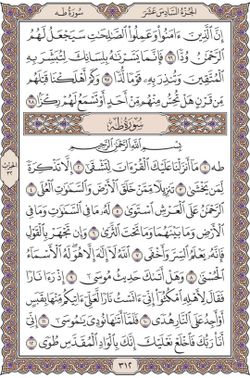 الجزء السادس عشر
سورة طه
إن الذين ءامنوا وعملوا الصلحت سيجعل لهم
الرحمن ودا ٩٦ فإنما يسرنه بلسانك لتبشر به
المتقين وتنذر به قوما لدا ٩٧ وكم أهلكنا قبلهم
من قرن هل تحس منهم من أحد أو تسمع لهم ركزا ٩٨
سورة طه
بسم الله الرحمن الرحيم
طه ١ ما أنزلنا عليك القرءان لتشقى ٢ إلا تذكرة
لمن يخشى ٣ تنزيلا ممن خلق الأرض والسموت العلى ٤
الرحمن على العرش استوى ٥ له ما في السموت وما في
الأرض وما بينهما وما تحت الثرى ٦ وإن تجهر بالقول
فإنه يعلم السر وأخفى ٧ الله لا إله إلا هو له الأسماء
الحسنى ٨ وهل أتىك حديث موسى ٩ إذ رءا نارا
فقال لأهله امكثوا إني ءانست نارا لعلي ءاتيكم منها بقبس
أو أجد على النار هدى ١٠ فلما أتىها نودي يموسى ١١ إني
أنا ربك فاخلع نعليك إنك بالواد المقدس طوى ١٢
الحزب
٣٢
٣١٢